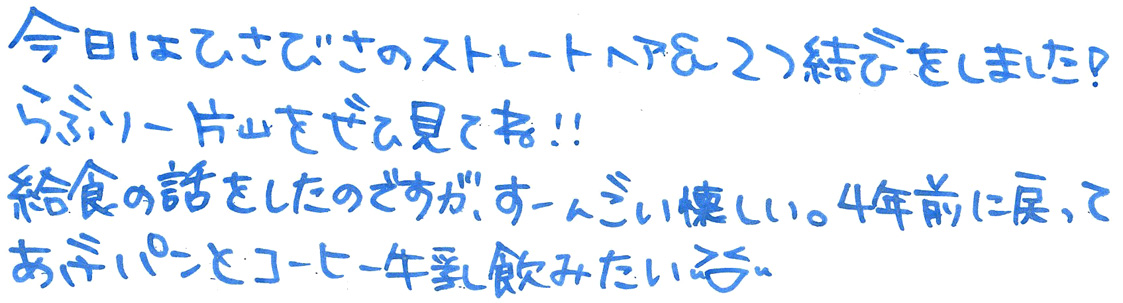 今日はひさびさのストレートヘア&2つ結びをしました!
らぶりー片山をぜひ見てね!!
給食の話をしたのですが、すーんごい懐しい。4年前に戻って
あげパンとコーヒー牛乳飲みたい